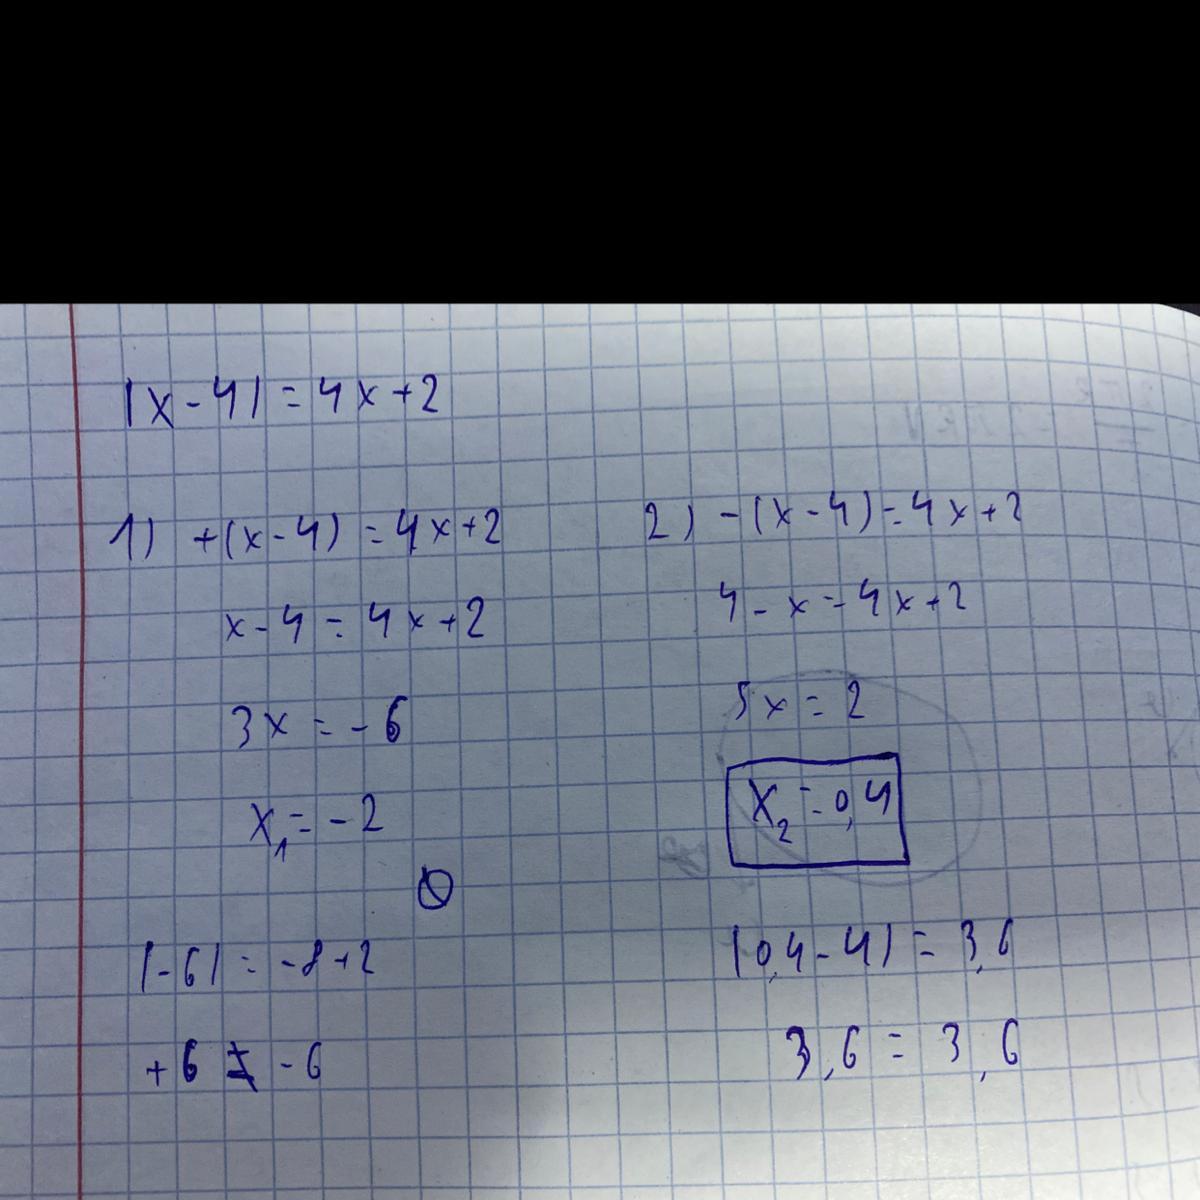 |x-4| = 4x+2
1) +(x-4) = 4x+2
x-4 = 4x+2
3x = -6
x₁ = -2
|-6| = -8+2
+6 ≠ -6
2) -(x-4) = 4x+2
4-x = 4x+2
5x = 2
x₂ = 0,4
|0,4-4| = 3,6
3,6 = 3,6